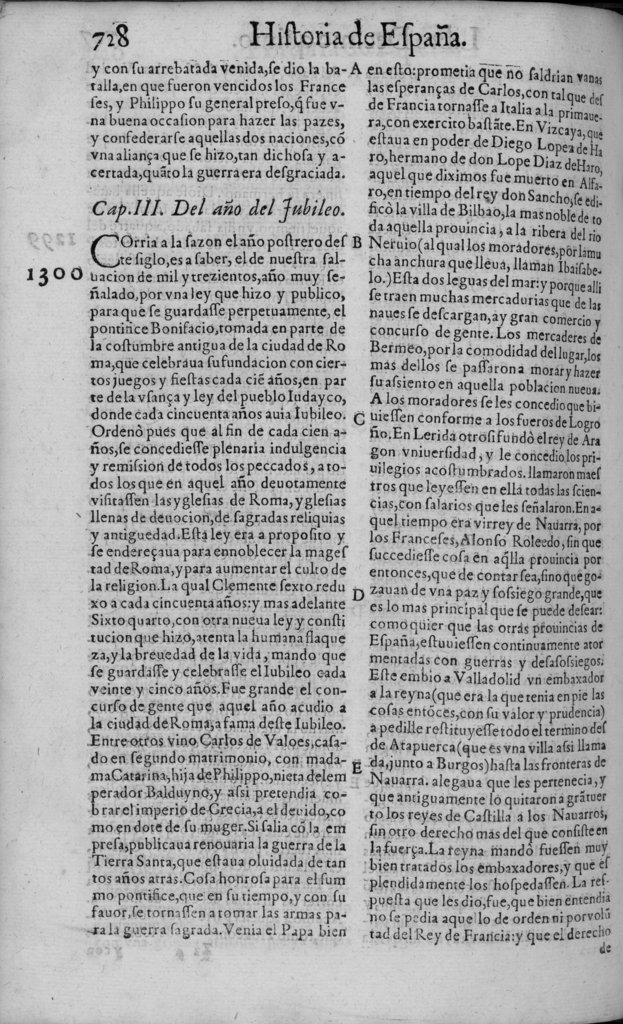 728 Historia de España.
y con su arrebatada venida, se dio la ba-
talla, en que fueron vencidos los France
ses, y Philippo su general preso, q̃ fue v-
na buena occasion para hazer las pazes,
y confederarse aquellas dos naciones, cõ
vna aliança que se hizo, tan dichosa y a-
certada, quãto la guerra era desgraciada.
Cap. III. Del año del Jubileo.
COrria a la sazon el año postrero des
te siglo, es a saber, el de nuestra sal-
1300
uacion de mil y trezientos, año muy se-
ñalado, por vna ley que hizo y publico,
para que se guardasse perpetuamente, el
pontifice Bonifacio, tomada en parte de
la costumbre antigua de la ciudad de Ro
ma, que celebraua su fundacion con cier-
tos juegos y fiestas cada ciẽ años, en par
te de la vsança y ley del pueblo Iudayco,
donde cada cincuenta años auia Iubileo.
Ordenò pues que al fin de cada cien a-
ños, se concediesse plenaria indulgencia
y remission de todos los peccados, a to-
dos los que en aquel año deuotamente
visitassen las yglesias de Roma, yglesias
llenas de deuocion, de sagradas reliquias
y antiguedad. Esta ley era a proposito y
se endereçaua para ennoblecer la mages
tad de Roma, y para aumentar el culto de
la religion. La qual Clemente sexto redu
xo a cada cincuenta años: y mas adelante
Sixto quarto, con otra nueua ley y consti
tucion que hizo, atenta la humana flaque
za, y la breuedad de la vida, mando que
se guardasse y celebrasse el Iubileo cada
veinte y cinco años. Fue grande el con-
curso de gente que aquel año acudio a
la ciudad de Roma, a fama deste Iubileo.
Entre otros vino Carlos de Valoes, casa-
do en segundo matrimonio, con mada-
ma Catarina, hija de Philippo, nieta del em
perador Balduyno, y assi pretendia co-
brar el imperio de Grecia, a el deuido, co
mo en dote de su muger. Si salia cõ la em
presa, publicaua renouaria la guerra de la
Tierra Santa, que estaua oluidada de tan
tos años atras. Cosa honrosa para el sum
mo pontifice, que en su tiempo, y con su
fauor, se tornassen a tomar las armas pa-
ra la guerra sagrada. Venia el Papa bien
A en esto: prometia que no saldrian vanas
las esperanças de Carlos, con tal que des
de Francia tornasse a Italia a la primaue-
ra, con exercito bastãte. En Vizcaya, que
estaua en poder de Diego Lopez de Ha
ro, hermano de don Lope Diaz de Haro,
aquel que diximos fue muerto en Alfa-
ro, en tiempo del rey don Sancho, se edi-
ficò la villa de Bilbao, la mas noble de to
da aquella prouincia, a la ribera del rio
B Neruio (al qual los moradores, por la mu
cha anchura que lleua, llaman Ibaisabe-
lo.) Esta dos leguas del mar: y porque alli
se traen muchas mercadurias que de las
naues se descargan, ay gran comercio y
concurso de gente. Los mercaderes de
Bermeo, por la comodidad del lugar, los
mas dellos se passarona morar y hazer
su assiento en aquella poblacion nueua.
A los moradores se les concedio que bi-
C uiessen conforme a los fueros de Logro
ño. En Lerida otrosi fundò el rey de Ara
gon vniuersidad, y le concediò los pri-
uilegios acostumbrados. llamaron maes
tros que leyessen en ella todas las scien-
cias, con salarios que les señalaron. En a-
quel tiempo era virrey de Nauarra, por
los Franceses, Alonso Roleedo, sin que
succediesse cosa en aq̃lla prouincia por
entonces, que de contar sea, sino que go-
D zauan de vna paz y sossiego grande, que
es lo mas principal que se puede desear:
como quier que las otras prouincias de
España, estuuiessen continuamente ator
mentadas con guerras y desasosiegos.
Este embio a Valladolid vn embaxador
a la reyna (que era la que tenia en pie las
cosas entõces, con su valor y prudencia)
a pedille restituyesse todo el termino des
de Atapuerca (que es vna villa assi llama
E da, junto a Burgos) hasta las fronteras de
Nauarra. alegaua que les pertenecia, y
que antiguamente lo quitaron a gran tuer
to los reyes de Castilla a los Nauarros,
sin otro derecho más del que consiste en
la fuerça. La reyna mandò fuessen muy
bien tratados los embaxadores, y que es
plendidamente los hospedassen. La res-
puesta que les dio, fue, que bien entendia
no se pedia aquello de orden ni por volũ
tad del Rey de Francia: y que el derecho
de